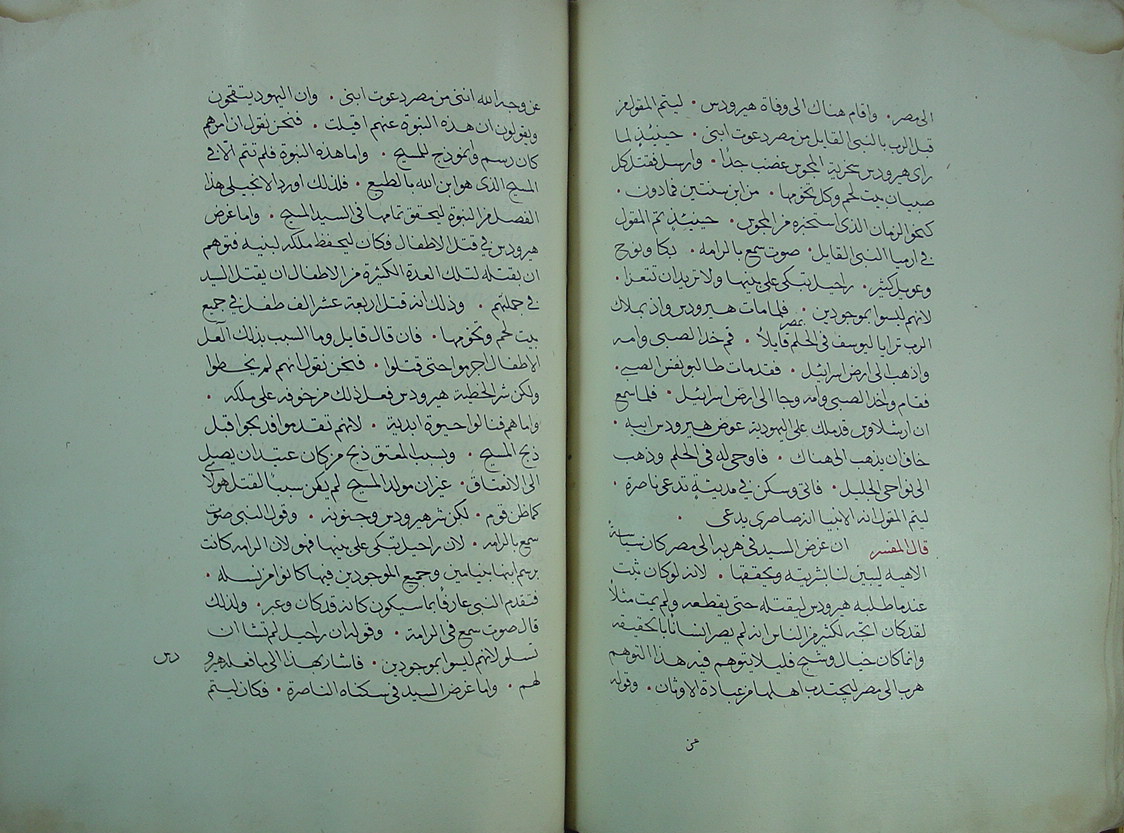 الى مصر. واقام هناك الى وفاة هيرودس. ليتم المقول من
قبل الرب بالنبي القايل من مصر دعوت ابني. حينيذٍ لما
راى هيرودس سخرية المجوس غضب جداً. وارسل فقتل كل
صبيان بيت لحم وكل تخومها. من ابن سنتين فما دون.
كنحو الزمان الذى استخبره من المجوس. حينيذٍ تم المقول
فى ارميا النبي القايل. صوت سمع بالرامه. بكا ونوح
وعويل كثير. راحيل تبكي على بنيها ولا تريد ان تتعزا.
لانهم ليسوا بموجودين. فلما مات هيرودس واذ بملاك
الرب ترايا ليوسف فى الحلم بمصر قايلاً. قم خذ الصبى وامه
واذهب الى ارض اسرائيل. فقد مات طالبو نفس الصبى.
فقام واخذ الصبى وامه وجا الى ارض اسرائيل. فلما سمع
ان ارشلاوس قد ملك على اليهودية عوض هيرودس ابيه.
خاف ان يذهب الى هناك. فاوحى له فى الحلم وذهب
الى نواحى الجليل. فاتى وسكن فى مدينةٍ تدعى ناصرة.
ليتم المقول انه الانبيا انه ناصارى يدعى.
قال المفسر ان غرض السيد فى هربه الى مصر كان سياسةً
الاهيه ليبين لنا بشريته ويحققها. لانه لو كان ثبت
عندما طلبه هيرودس ليقتله حتى يقطعه ولم يمت مثلاً
لقد كان اتجه لكثير من الناس انه لم يصر انسانا بالحقيقه
وانما كان خيال وشبح فليلا يتوهم فيه هذا التوهم
هرب الى مصر ليجتدب اهلها من عبادة الاوثان. وقوله
عن
عن وجه الله اننى من مصر دعوت ابنى. وان اليهود يتقحون
ويقولون ان هذه النبوة عنهم اقيلت. فنحن نقول ان امرهم
كان رسم وانموذج للمسيح. واما هذه النبوة فلم تتم الا فى
المسيح الذى هو ابن الله بالطبع. فلذلك اورد الانجيلى هذا
الفصل من النبوة ليحقق تمامها فى السيد المسيح. واما غرض
هيرودس فى قتل الاطفال فكان ليحفظ ملكه لبنيه فتوهم
ان بقتله لتلك العدة الكثيرة من الاطفال ان يقتل السيد
فى جملتهم. وذلك انه قتل اربعة عشر الف طفل فى جميع
بيت لحم وتخومها. فان قال قايل وما السبب بذلك العل
الاطفال اجرموا حتى قتلوا. فنحن نقول انهم لم يخطوا
ولكن شر الخطية هيرودس فعل ذلك من خوفه على ملكه.
واما هم فنالوا حيوة ابدية. لانهم تقدموا فدبحوا قبل
ذبح المسيح. وبسبب المعتق ذبح من كان عتيد ان يصل
الى الانعتاق. غير ان مولد المسيح لم يكن سببا لقتل هولاى
كما ظن قوم. لكن شر هيرودس وجنونه. وقول النبى صوت
سمع بالرامه. لان راحيل تبكى على بنيها فهو لان الرامه كانت
برسم ابنها بنيامين وجميع الموجودين فيها كانوا من نسله.
فتقدم النبى عارفاً بما سيكون كانه قد كان وعبر. ولذلك
قال صوت سمع فى الرامة. وقوله ان راحيل لم تشا ان
تسلو لانهم ليسوا بموجودين. فاشار بهذا الى ما فعله هيرو
لهم. واما غرض السيد فى سكناه الناصرة. فكان ليتم
دس